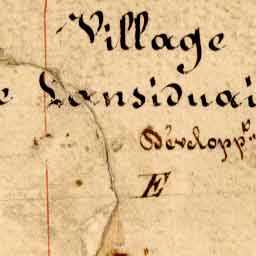 Village
e Lansiduai
Développ.t
E